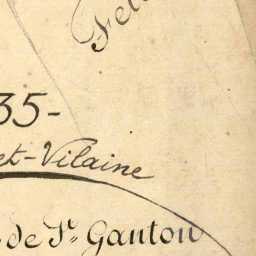 35-
et-Vilaine
de St Ganton